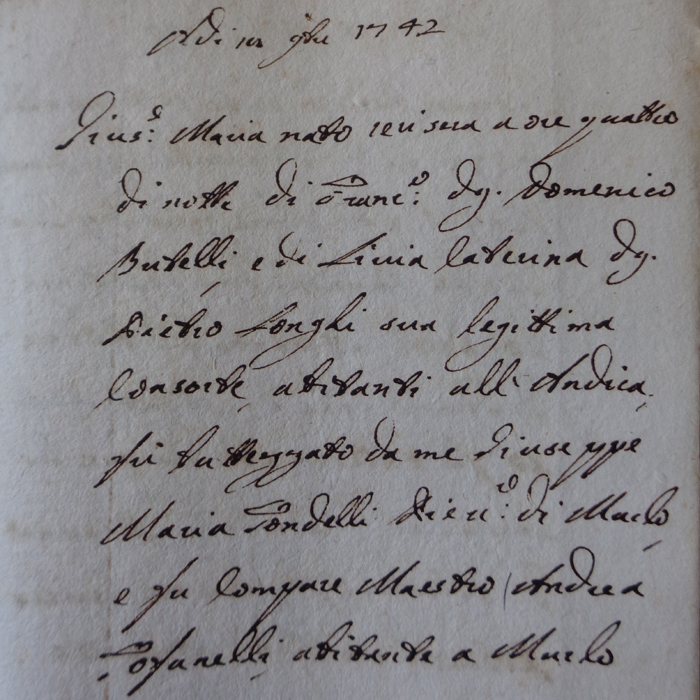 Adi 10 9bre 1742
Gius:e Maria nato ieri sera a ore quattro
di notte di Franc:o dq. Domenico
Butelli e di Livia Caterina dq.
Pietro Longhi sua legittima
Consorte abitanti all' Andica,
fù battezzato da me Giuseppe
Maria Fondelli Piev:o di Muclo,
e fu Compare Maestro Andrea
abitante a Muclo